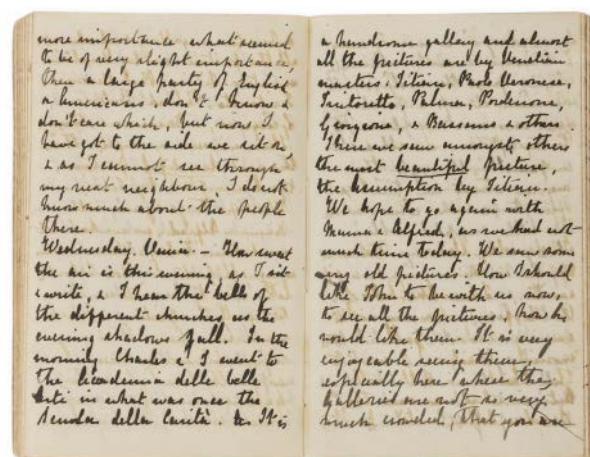 more importance what seemed
to be of very slight importance,
then a large party of English
or Americans, don't know &
don't care which, but now I
have got to the side we sit on,
& as I cannot see through
my next neighbour, I do not
know much about the people
there.
Wednesday. Venice. – How sweet
the air is this evening, as I sit
& write, & I hear the bells of
the different churches, as the
evening shadows fall. In the
morning Charles & I went to
the Accademia delle belle
Arti in what was once the
Scuola della Carità. It is
a handsome gallery and almost
all the pictures are by Venetian
masters, Titian, Paolo Veronese,
Tintoretto, Palma, Pordenone,
Giorgione, & Bassano & others.
There we saw amongst others
the most beautiful picture,
the Assumption by Titian.
We hope to go again with
Mamma & Alfred, as we had not
much time today. We saw some
very old pictures. How I should
like John to be with us now,
to see all the pictures, how he
would like them. It is very
enjoyable seeing them,
especially here where the
galleries are not so very
much crowded, that you are